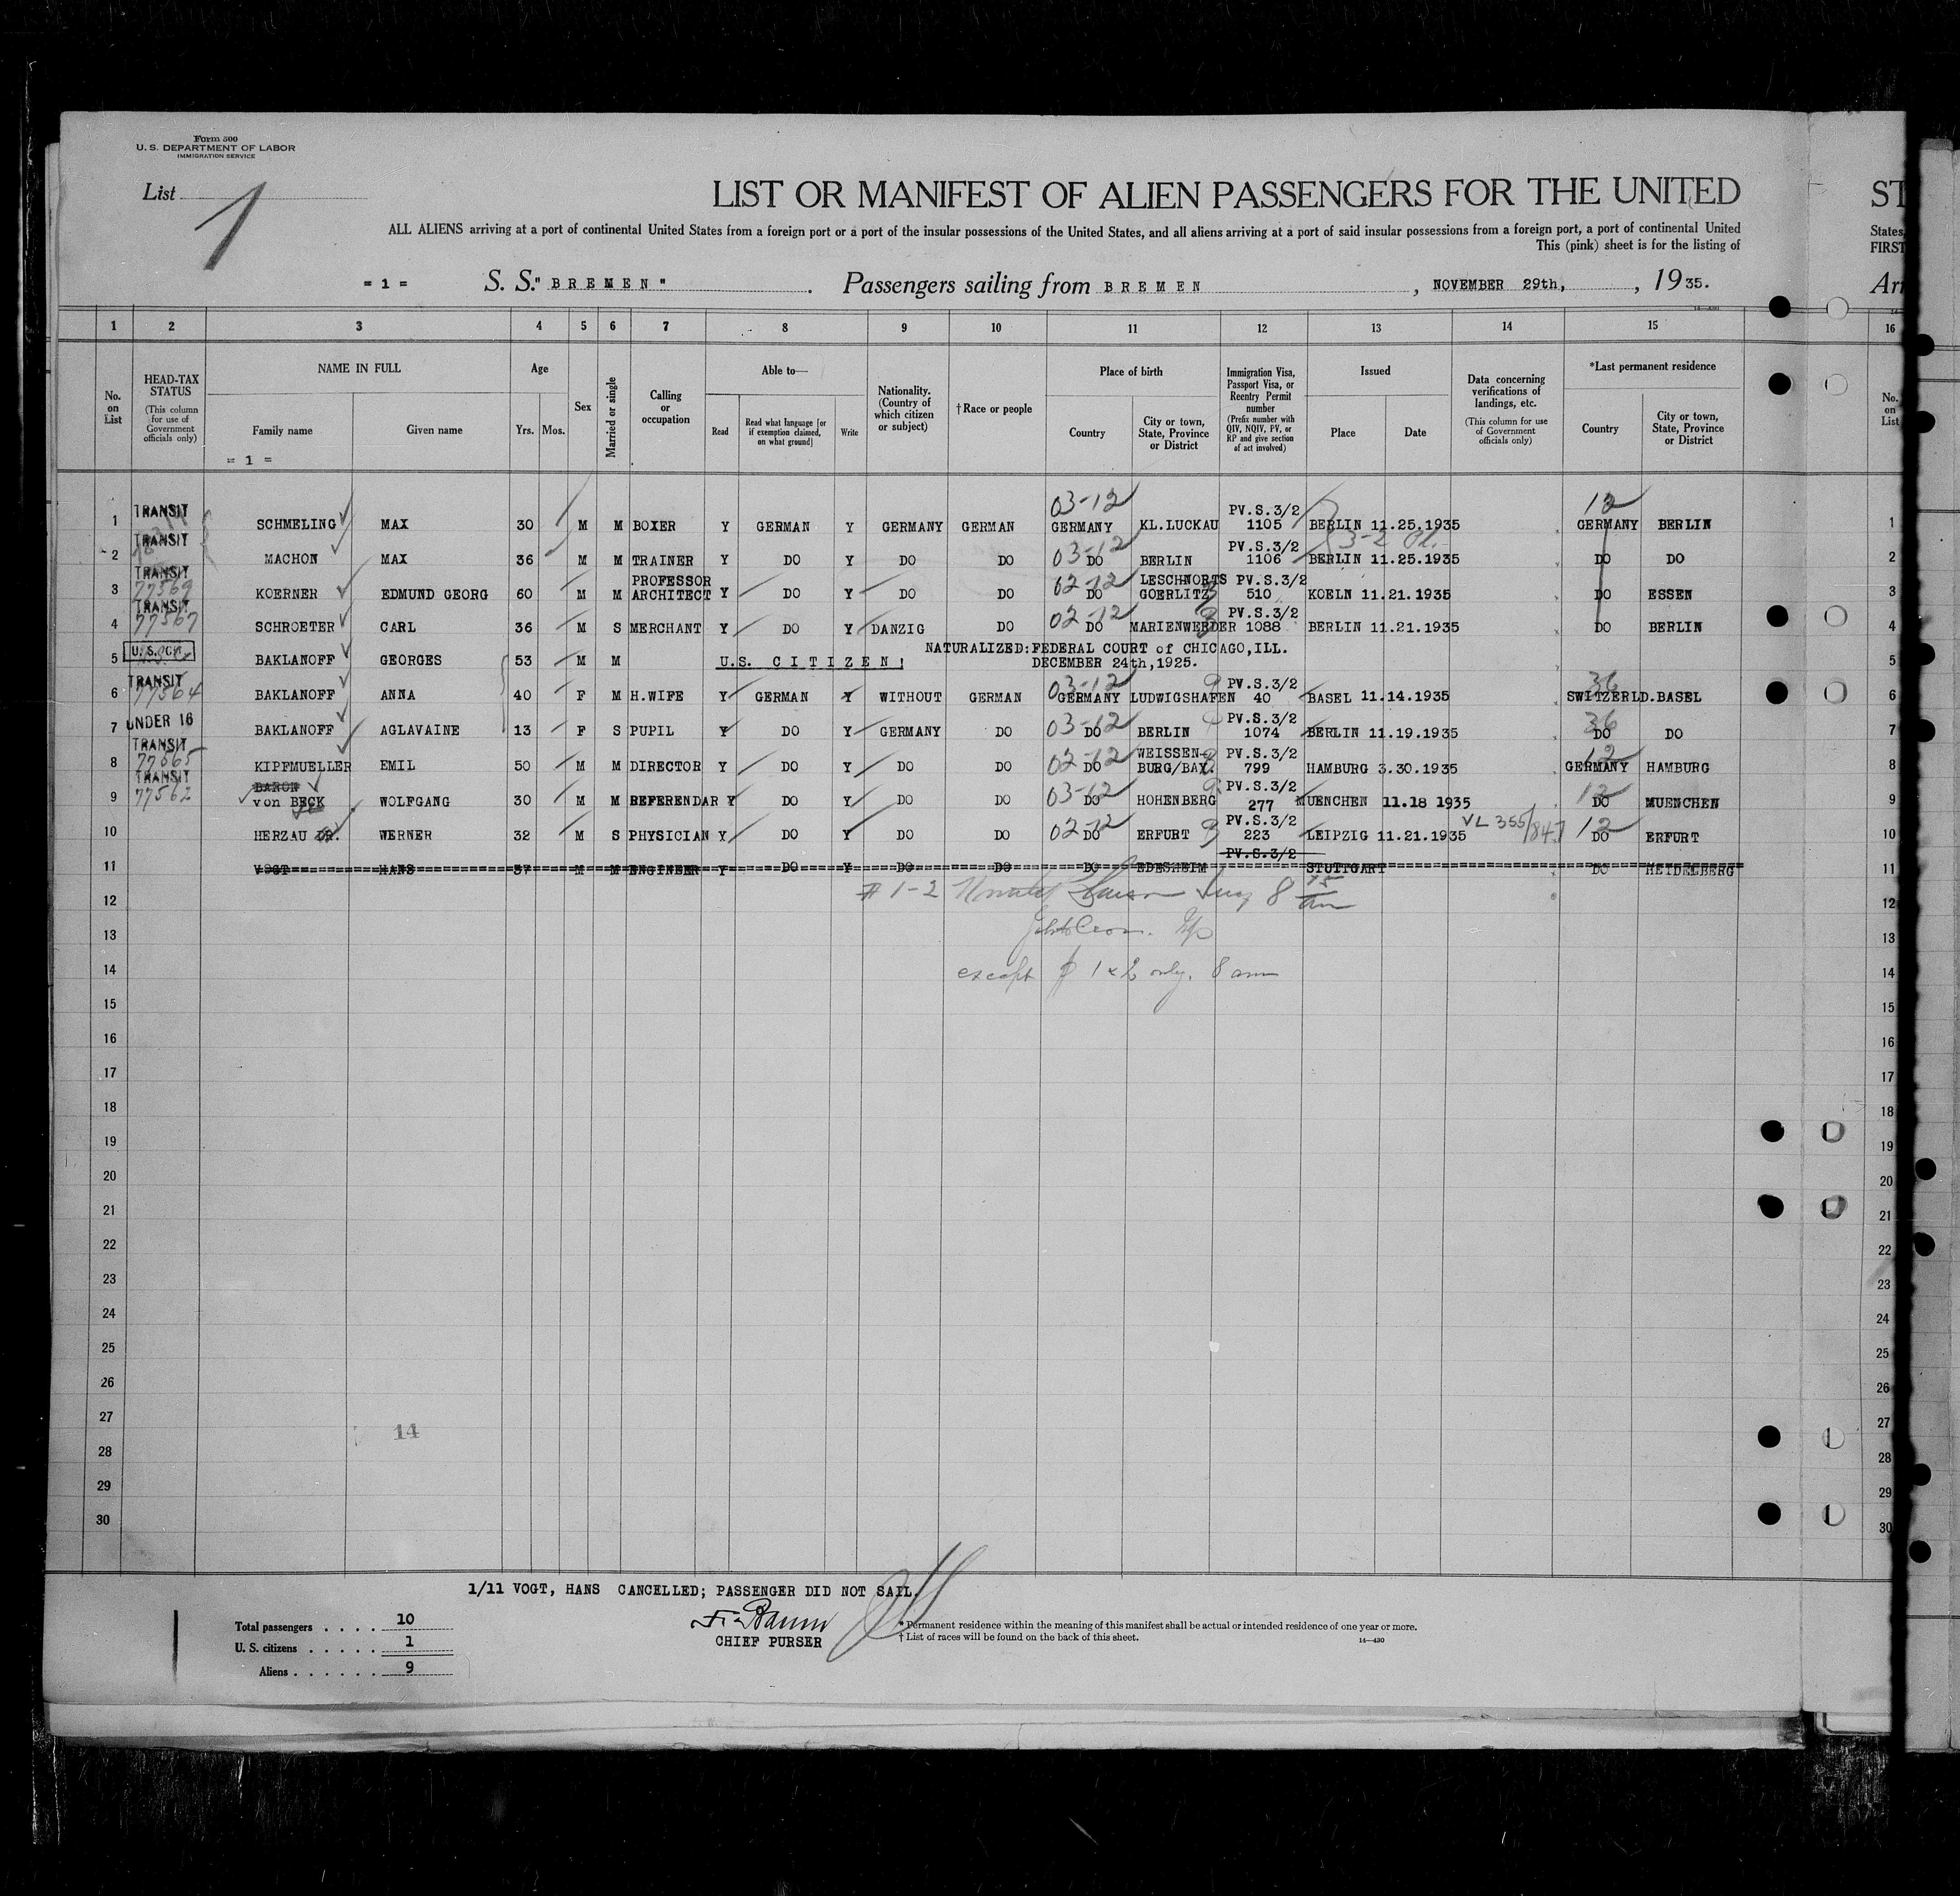 Form 500
U. S. DEPARTMENT OF LABOR
IMMIGRATION SERVICE
List 1
LIST OR MANIFEST OF ALIEN PASSENGERS FOR THE UNITED
ST
ALL ALIENS arriving at a port of continental United States from a foreign port or a port of the insular possessions of the United States, and all aliens arriving at a port of said insular possessions from a foreign port, a port of continental United
States
This (pink) sheet is for the listing of
FIRST
= 1 = S. S. "BREMEN". Passengers sailing from BREMEN, NOVEMBER 29th, , 1935.
Arr
1 2 3 4 5 6 7 8 9 10 11 12 13 14 15 16
No. on List
HEAD-TAX STATUS (This column for use of Government officials only)
NAME IN FULL
Family name Given name
= 1 =
Age
Yrs. Mos.
Sex
Married or single
Calling or occupation
Able to—
Read
Read what language [or if exemption claimed, on what ground]
Write
Nationality. (Country of which citizen or subject)
†Race or people
Place of birth
Country
City or town, State, Province or District
Immigration Visa, Passport Visa, or Reentry Permit number (Prefix number with QIV, NQIV, PV, or RP and give section of act involved)
Issued
Place Date
Data concerning verifications of landings, etc. (This column for use of Government officials only)
*Last permanent residence
Country
City or town, State, Province or District
No. on List
1 TRANSIT SCHMELING MAX 30 M M BOXER Y GERMAN Y GERMANY GERMAN 03-12 GERMANY KL.LUCKAU PV.S.3/2 1105 BERLIN 11.25.1935 12 GERMANY BERLIN 1
2 TRANSIT MACHON MAX 36 M M TRAINER Y DO Y DO DO 03-12 DO BERLIN PV.S.3/2 1106 BERLIN 11.25.1935 DO DO 2
3 TRANSIT 77569 KOERNER EDMUND GEORG 60 M M PROFESSOR ARCHITECT Y DO Y DO DO 02-12 DO LESCHNORTS GOERLITZ PV.S.3/2 510 KOELN 11.21.1935 DO ESSEN 3
4 TRANSIT 77567 SCHROETER CARL 36 M S MERCHANT Y DO Y DANZIG DO 02-12 DO MARIENWERDER PV.S.3/2 1088 BERLIN 11.21.1935 DO BERLIN 4
5 U.S. CIT. BAKLANOFF GEORGES 53 M M U.S. CITIZEN! NATURALIZED:FEDERAL COURT of CHICAGO,ILL. DECEMBER 24th,1925. 5
6 TRANSIT 77564 BAKLANOFF ANNA 40 F M H.WIFE Y GERMAN Y WITHOUT GERMAN 03-12 GERMANY LUDWIGSHAFEN PV.S.3/2 40 BASEL 11.14.1935 36 SWITZERLD. BASEL 6
7 UNDER 16 BAKLANOFF AGLAVAINE 13 F S PUPIL Y DO Y GERMANY DO 03-12 DO BERLIN PV.S.3/2 1074 BERLIN 11.19.1935 36 DO DO 7
8 TRANSIT 77565 KIPFMUELLER EMIL 50 M M DIRECTOR Y DO Y DO DO 02-12 DO WEISSEN- BURG/BAY. PV.S.3/2 799 HAMBURG 3.30.1935 12 GERMANY HAMBURG 8
9 TRANSIT 77562 BARON von BECK WOLFGANG 30 M M REFERENDAR Y DO Y DO DO 03-12 DO HOHENBERG PV.S.3/2 277 MUENCHEN 11.18 1935 12 DO MUENCHEN 9
10 HERZAU DR. WERNER 32 M S PHYSICIAN Y DO Y DO DO 02-12 DO ERFURT PV.S.3/2 223 LEIPZIG 11.21.1935 VL 355/847 12 DO ERFURT 10
11 VOGT HANS 37 M M ENGINEER Y DO Y DO DO DO EDESHEIM PV.S.3/2 STUTTGART DO HEIDELBERG 11
12 # 1-2 8 15 am 12
13 13
14 except # 1 & 2 only. 8 am 14
15 15
16 16
17 17
18 18
19 19
20 20
21 21
22 22
23 23
24 24
25 25
26 26
27 14 27
28 28
29 29
30 30
1/11 VOGT, HANS CANCELLED; PASSENGER DID NOT SAIL.
Total passengers . . . . 10
U. S. citizens . . . . . 1
Aliens . . . . . . 9
CHIEF PURSER
* Permanent residence within the meaning of this manifest shall be actual or intended residence of one year or more.
† List of races will be found on the back of this sheet.
14—430